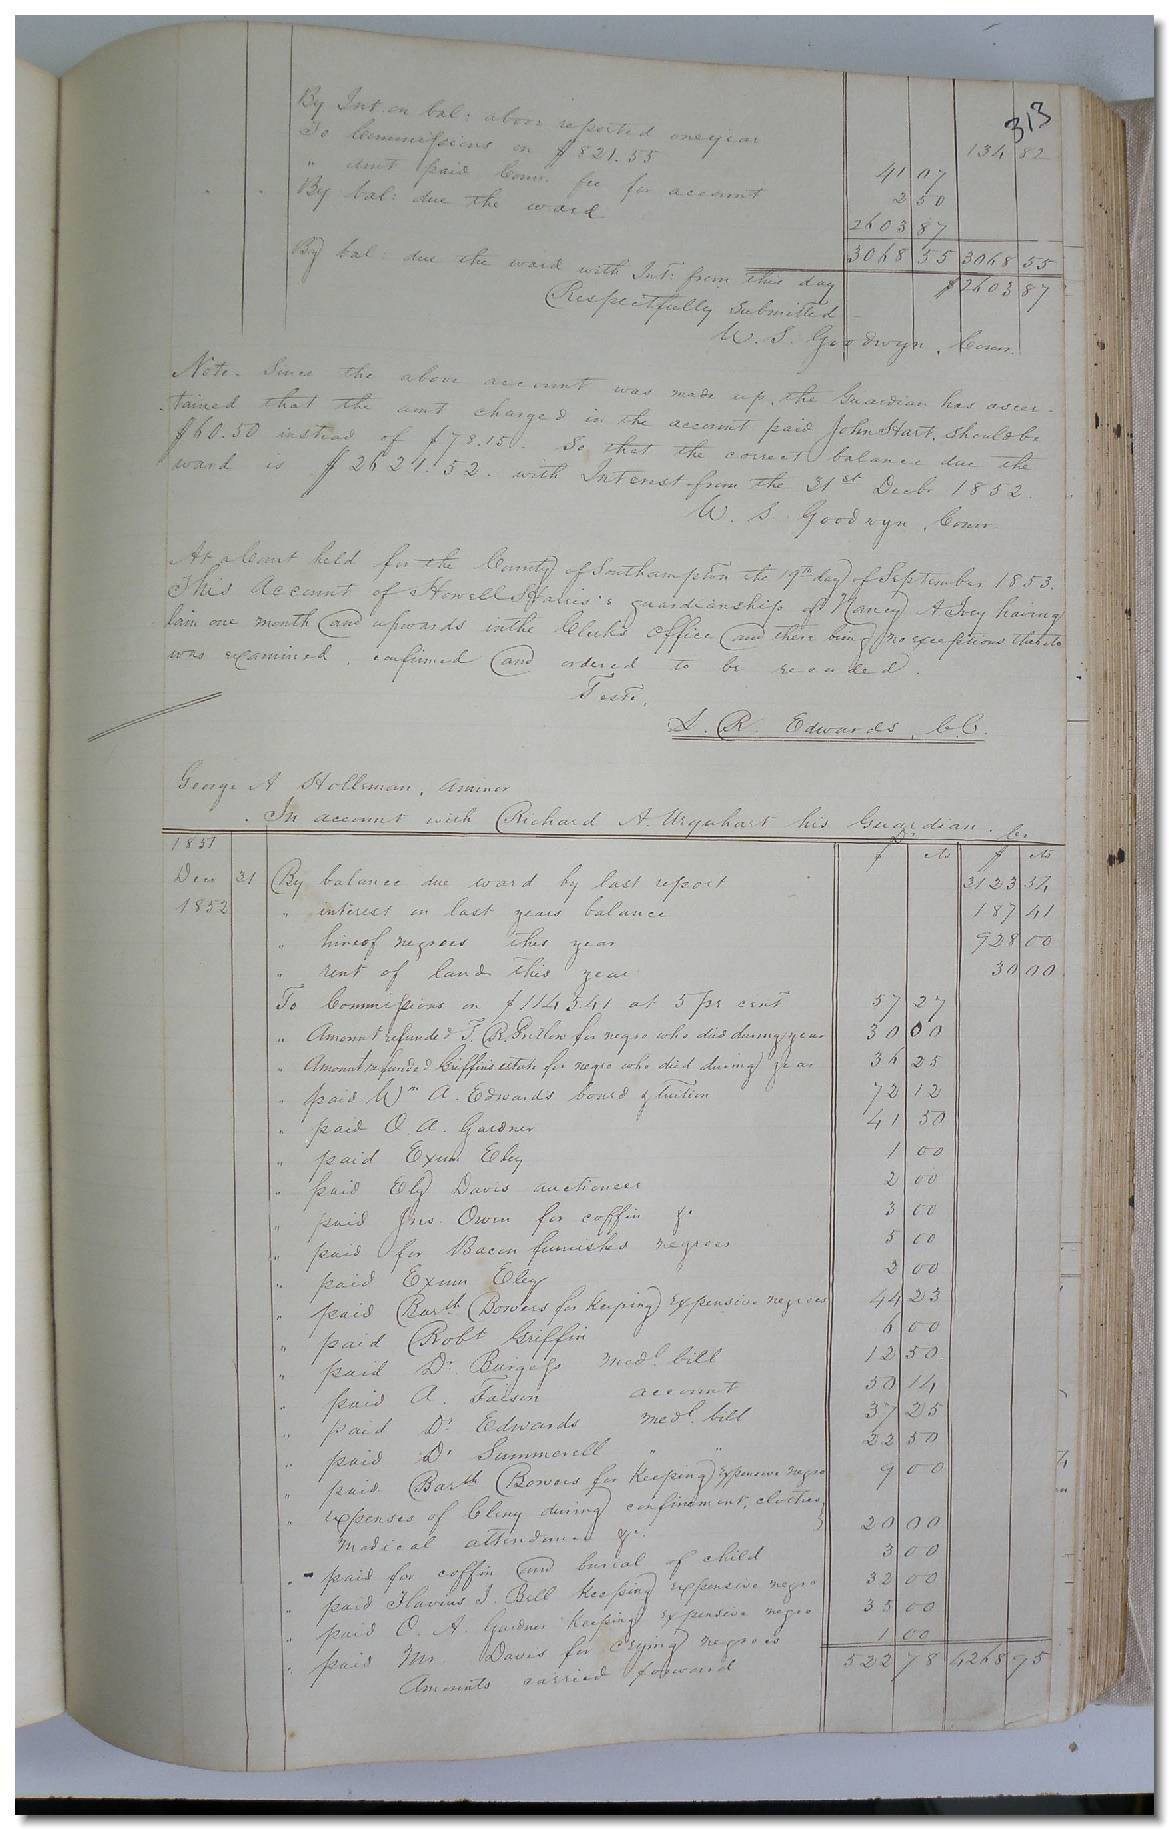 313
By Int. on bal: above reported one year 134 82
To Commissions on $821.55 41 07
" amt paid Comr. fee for account 2 50
By bal: due the ward 2603 87
3068 55 3068 55
By bal: due the ward with Int: from this day $2603 87
Respectfully Submitted
W. S. Goodwyn, Comr.
Note. Since the above account was made up, the Guardian has ascer-
tained that the amt charged in the account paid John Hart, should be
$60.50 instead of $78.15. So that the correct balance due the
ward is $2621.52. with Interest from the 31st Decbr 1852.
W. S. Goodwyn, Comr
At a Court held for the County of Southampton the 19th day of September 1853.
This Account of Howell Harris's guardianship of Nancy A Ivey having
lain one month and upwards in the Clerk's office and there being no exceptions thereto
was examined, confirmed and ordered to be recorded.
Teste,
L. R. Edwards, C.C.
George A Holleman, a minor
In account with Richard A. Urquhart his Guardian. Dr Cr
1851 $ cts $ cts
Dec 31 By balance due ward by last report 3123 54
1852 " interest on last years balance 187 41
" hire of negroes this year 928 00
" rent of land this year 30 00
To Commissions on $1145.41 at 5 pr cent 57 27
" Amount refunded T. R. for negro who died during year 30 00
" Amount refunded Griffins estate for negro who died during year 36 25
" paid Wm A. Edwards board & tuition 72 12
" paid O. A. Gardner 41 50
" paid Exum Eley 1 00
" paid Ely Davis auctioneer 2 00
" paid Jno. Owen for coffin &c 3 00
" paid for Bacon furnished negroes 5 00
" paid Exum Eley 2 00
" paid Barth Bowers for keeping expensive negroes 44 23
" paid Robt Griffin 6 00
" paid Dr Burgess medl. bill 12 50
" paid A. Faison account 30 14
" paid Dr Edwards medl. bill 37 25
" paid Dr Summerell " " 22 50
" paid Barth Bowers for keeping expensive negro 9 00
" expenses of Clemy during confinement, clothes,
medical attendance &c. 20 00
" paid for coffin and burial of child 3 00
" paid Flavius J. Bell keeping expensive negro 32 00
" paid O. A. Gardner keeping expensive negro 35 00
" paid Mr Davis for crying negroes 1 00
Amounts carried forward 522 78 4268 95